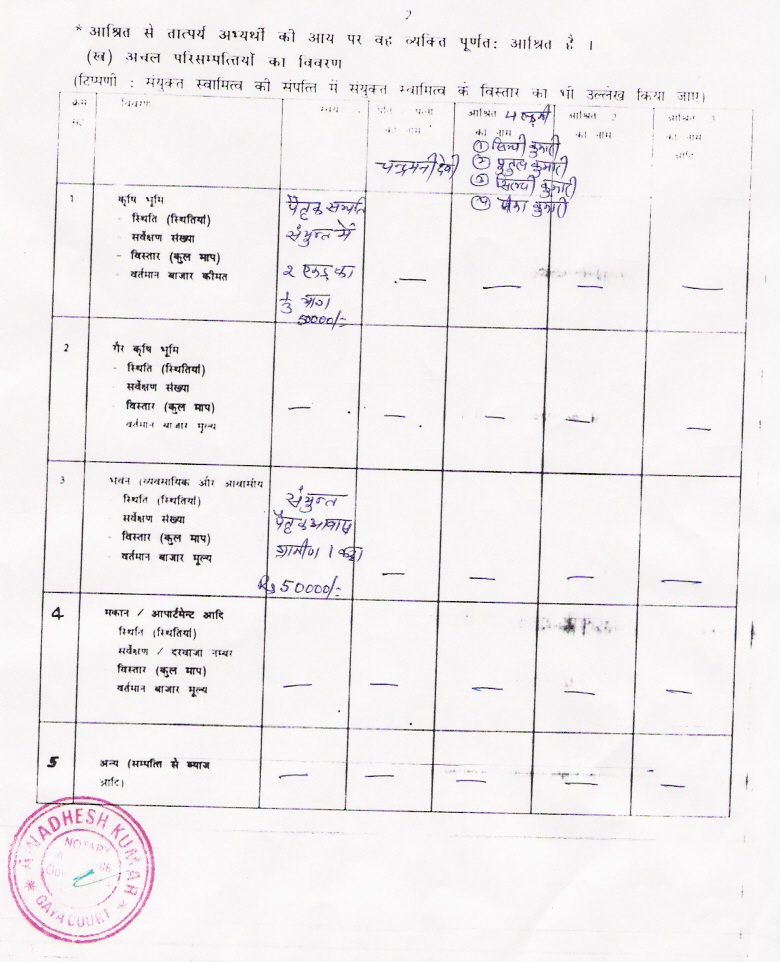 2
* आश्रित से तात्पर्य अभ्यर्थी की आय पर वह व्यक्ति पूर्णत: आश्रित है ।
(ख) अचल परिसम्पत्तियों का विवरण
(टिप्पणी : संयुक्त स्वामित्व की संपत्ति में संयुक्त स्वामित्व के विस्तार का भी उल्लेख किया जाए)
क्रम सं. विवरण स्वयं पति / पत्नी का नाम आश्रित 1 का नाम आश्रित 2 का नाम आश्रित 3 का नाम आदि
चन्द्रमनी देवी
4 लड़की
① सिम्पी कुमारी
② कुमारी
③ शिल्पी कुमारी
④ कुमारी
1 कृषि भूमि
- स्थिति (स्थितियां)
- सर्वेक्षण संख्या
- विस्तार (कुल माप)
- वर्तमान बाजार कीमत
पैतृक सम्पति
संयुक्त में
२ एकड़ का
1/3 भाग
50000/-
— — — —
2 गैर कृषि भूमि
- स्थिति (स्थितियां)
- सर्वेक्षण संख्या
विस्तार (कुल माप)
वर्तमान बाजार मूल्य
— — — — —
3 भवन (व्यवसायिक और आवासीय
स्थिति (स्थितियां)
सर्वेक्षण संख्या
- विस्तार (कुल माप)
- वर्तमान बाजार मूल्य
संयुक्त
पैतृक आवास
ग्रामीण 1 कट्ठा
Rs 50000/=
— — — —
4 मकान / आपार्टमेन्ट आदि
स्थिति (स्थितियां)
सर्वेक्षण / दरवाजा नम्बर
विस्तार (कुल माप)
वर्तमान बाजार मूल्य
— — — — —
5 अन्य (सम्पत्ति से ब्याज
आदि)
— — — — —
AWADHESH KUMAR
NOTARY
GAYA COURT